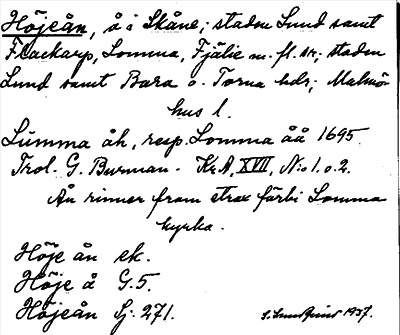 Höjeån, å i Skåne; staden Lund samt
Flackarp, Lomma, Fjälie m. fl. snr; staden
Lund samt Bara o. Torna hdr; Malmö-
hus l.
Lumma åh, resp. Lomma åå 1695.
Trol. G. Burman. Kr.A, XVII, No 1. o. 2.
Ån rinner fram strax förbi Lomma
kyrka.
Höje ån ek.
Höje å G.5.
Höjeån Gj: 271.
1937.